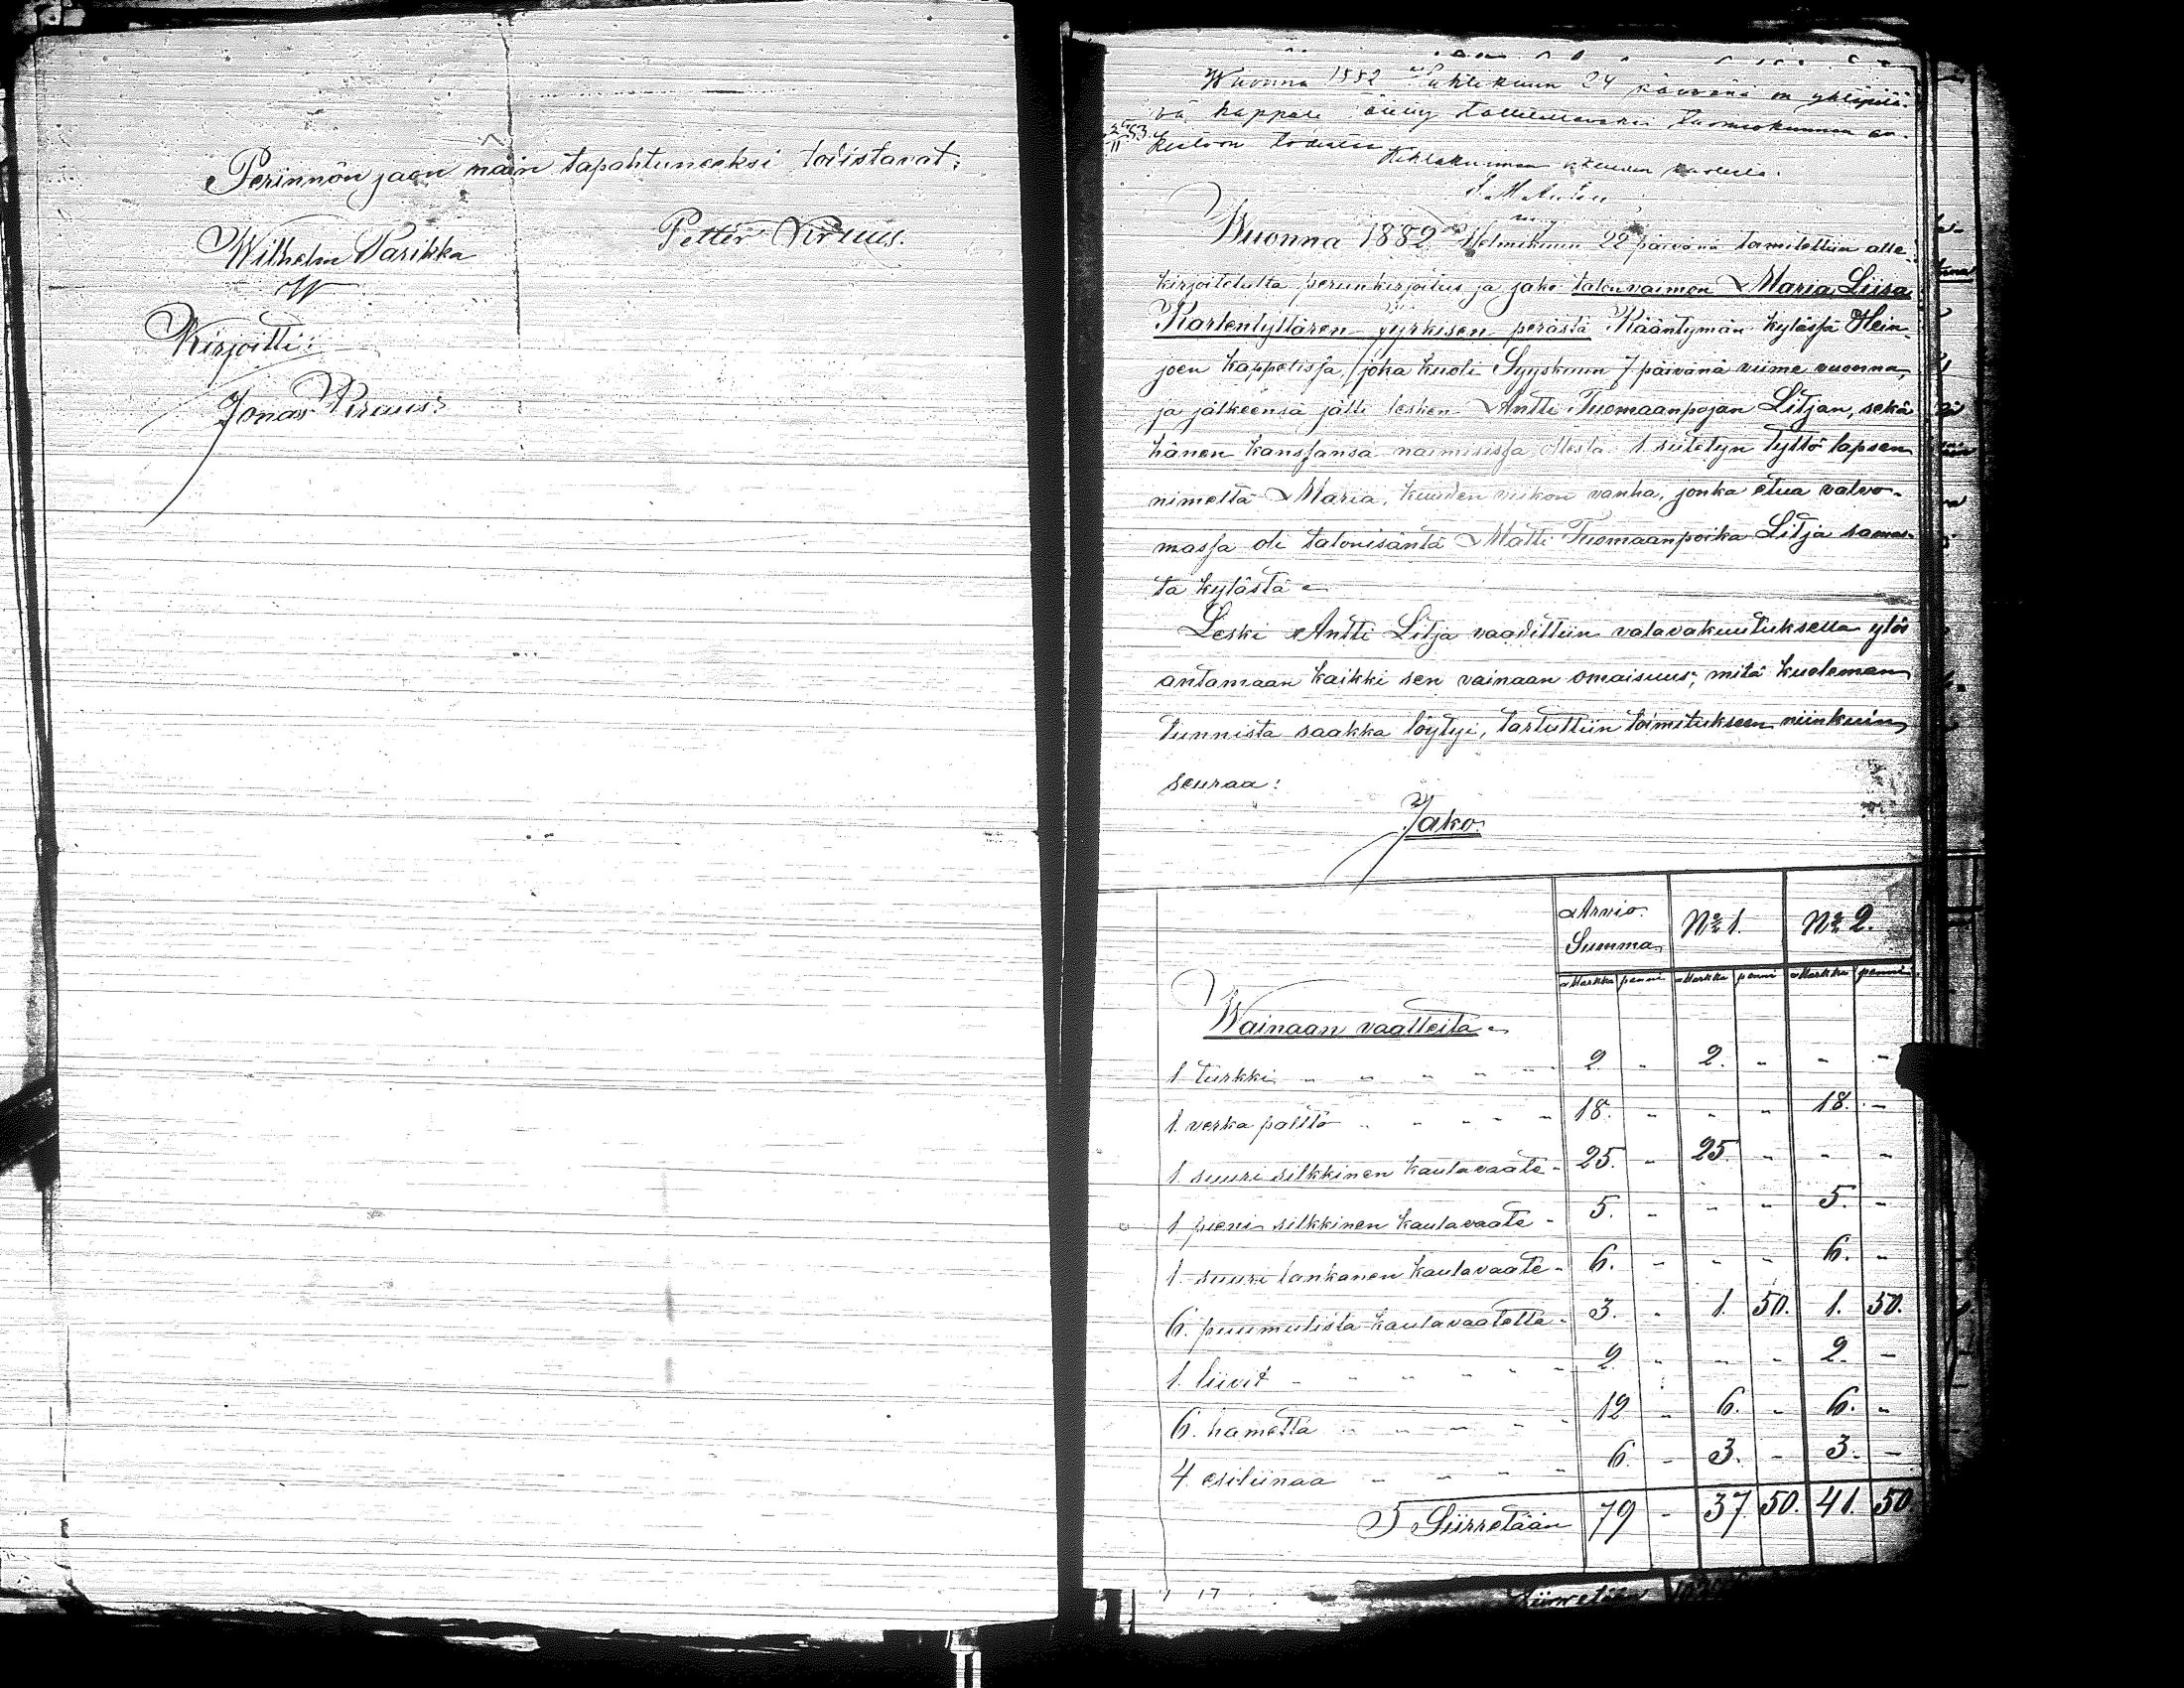 Perinnön jaon näin tapahtuneeksi todistavat:
Wilhelm Parikka
Petter Kruus.
W
Kirjoitti:
Jonas Kruus:
Wuonna 1882 Huhtikuun 24 päivänä on yhtäpitä-
vä kappale tuomiokunnan ar-
kistoon todistaa
Wuonna 1882 Helmikuun 22 päivänä toimitettiin alle-
kirjoitetulta perunkirjoitus ja jako talonvaimon Maria Liisa
Karlentyttären Yyrkisen perästä Kääntymän kylässä Hein-
joen kappelissa, joka kuoli Syyskuun 7 päivänä viime vuonna,
ja jälkeensä jätti lesken Antti Tuomaanpojan Litjan, sekä
hänen kanssansa naimisissa ollesta 1 siitetyn tyttö lapsen
nimeltä Maria, kuuden viikon vanha, jonka etua valvo-
massa oli talonisäntä Matti Tuomaanpoika Litja samas-
ta kylästä
Leski Antti Litja vaadittiin valavakuutuksella ylös
antamaan kaikki sen vainaan omaisuus, mitä kuoleman
tunnista saakka löytyi, tartuttiin toimitukseen niinkuin
seuraa:
Jako
Arvio Summa N:o 1. N:o 2.
Markka penni Markka penni Markka penni
Wainaan vaatteita
1 turkki - - - - - 2. - 2. - - -
1. verka palttö - - - - 18. - - - 18. -
1. suuri silkkinen kaulavaate - 25. - 25. - - -
1 pieni silkkinen kaulavaate - 5. - - - 5. -
1. suuri lankanen kaulavaate - 6. - - - 6. -
6. puumulista kaulavaatetta - 3. - 1. 50. 1. 50.
1. liivit - - - - - 2. - - - 2. -
6. hametta - - - - - 12 - 6. - 6. -
4. esiliinaa - - - - 6. - 3. - 3. -
Siirretään 79 - 37 50. 41. 50
Siirretään